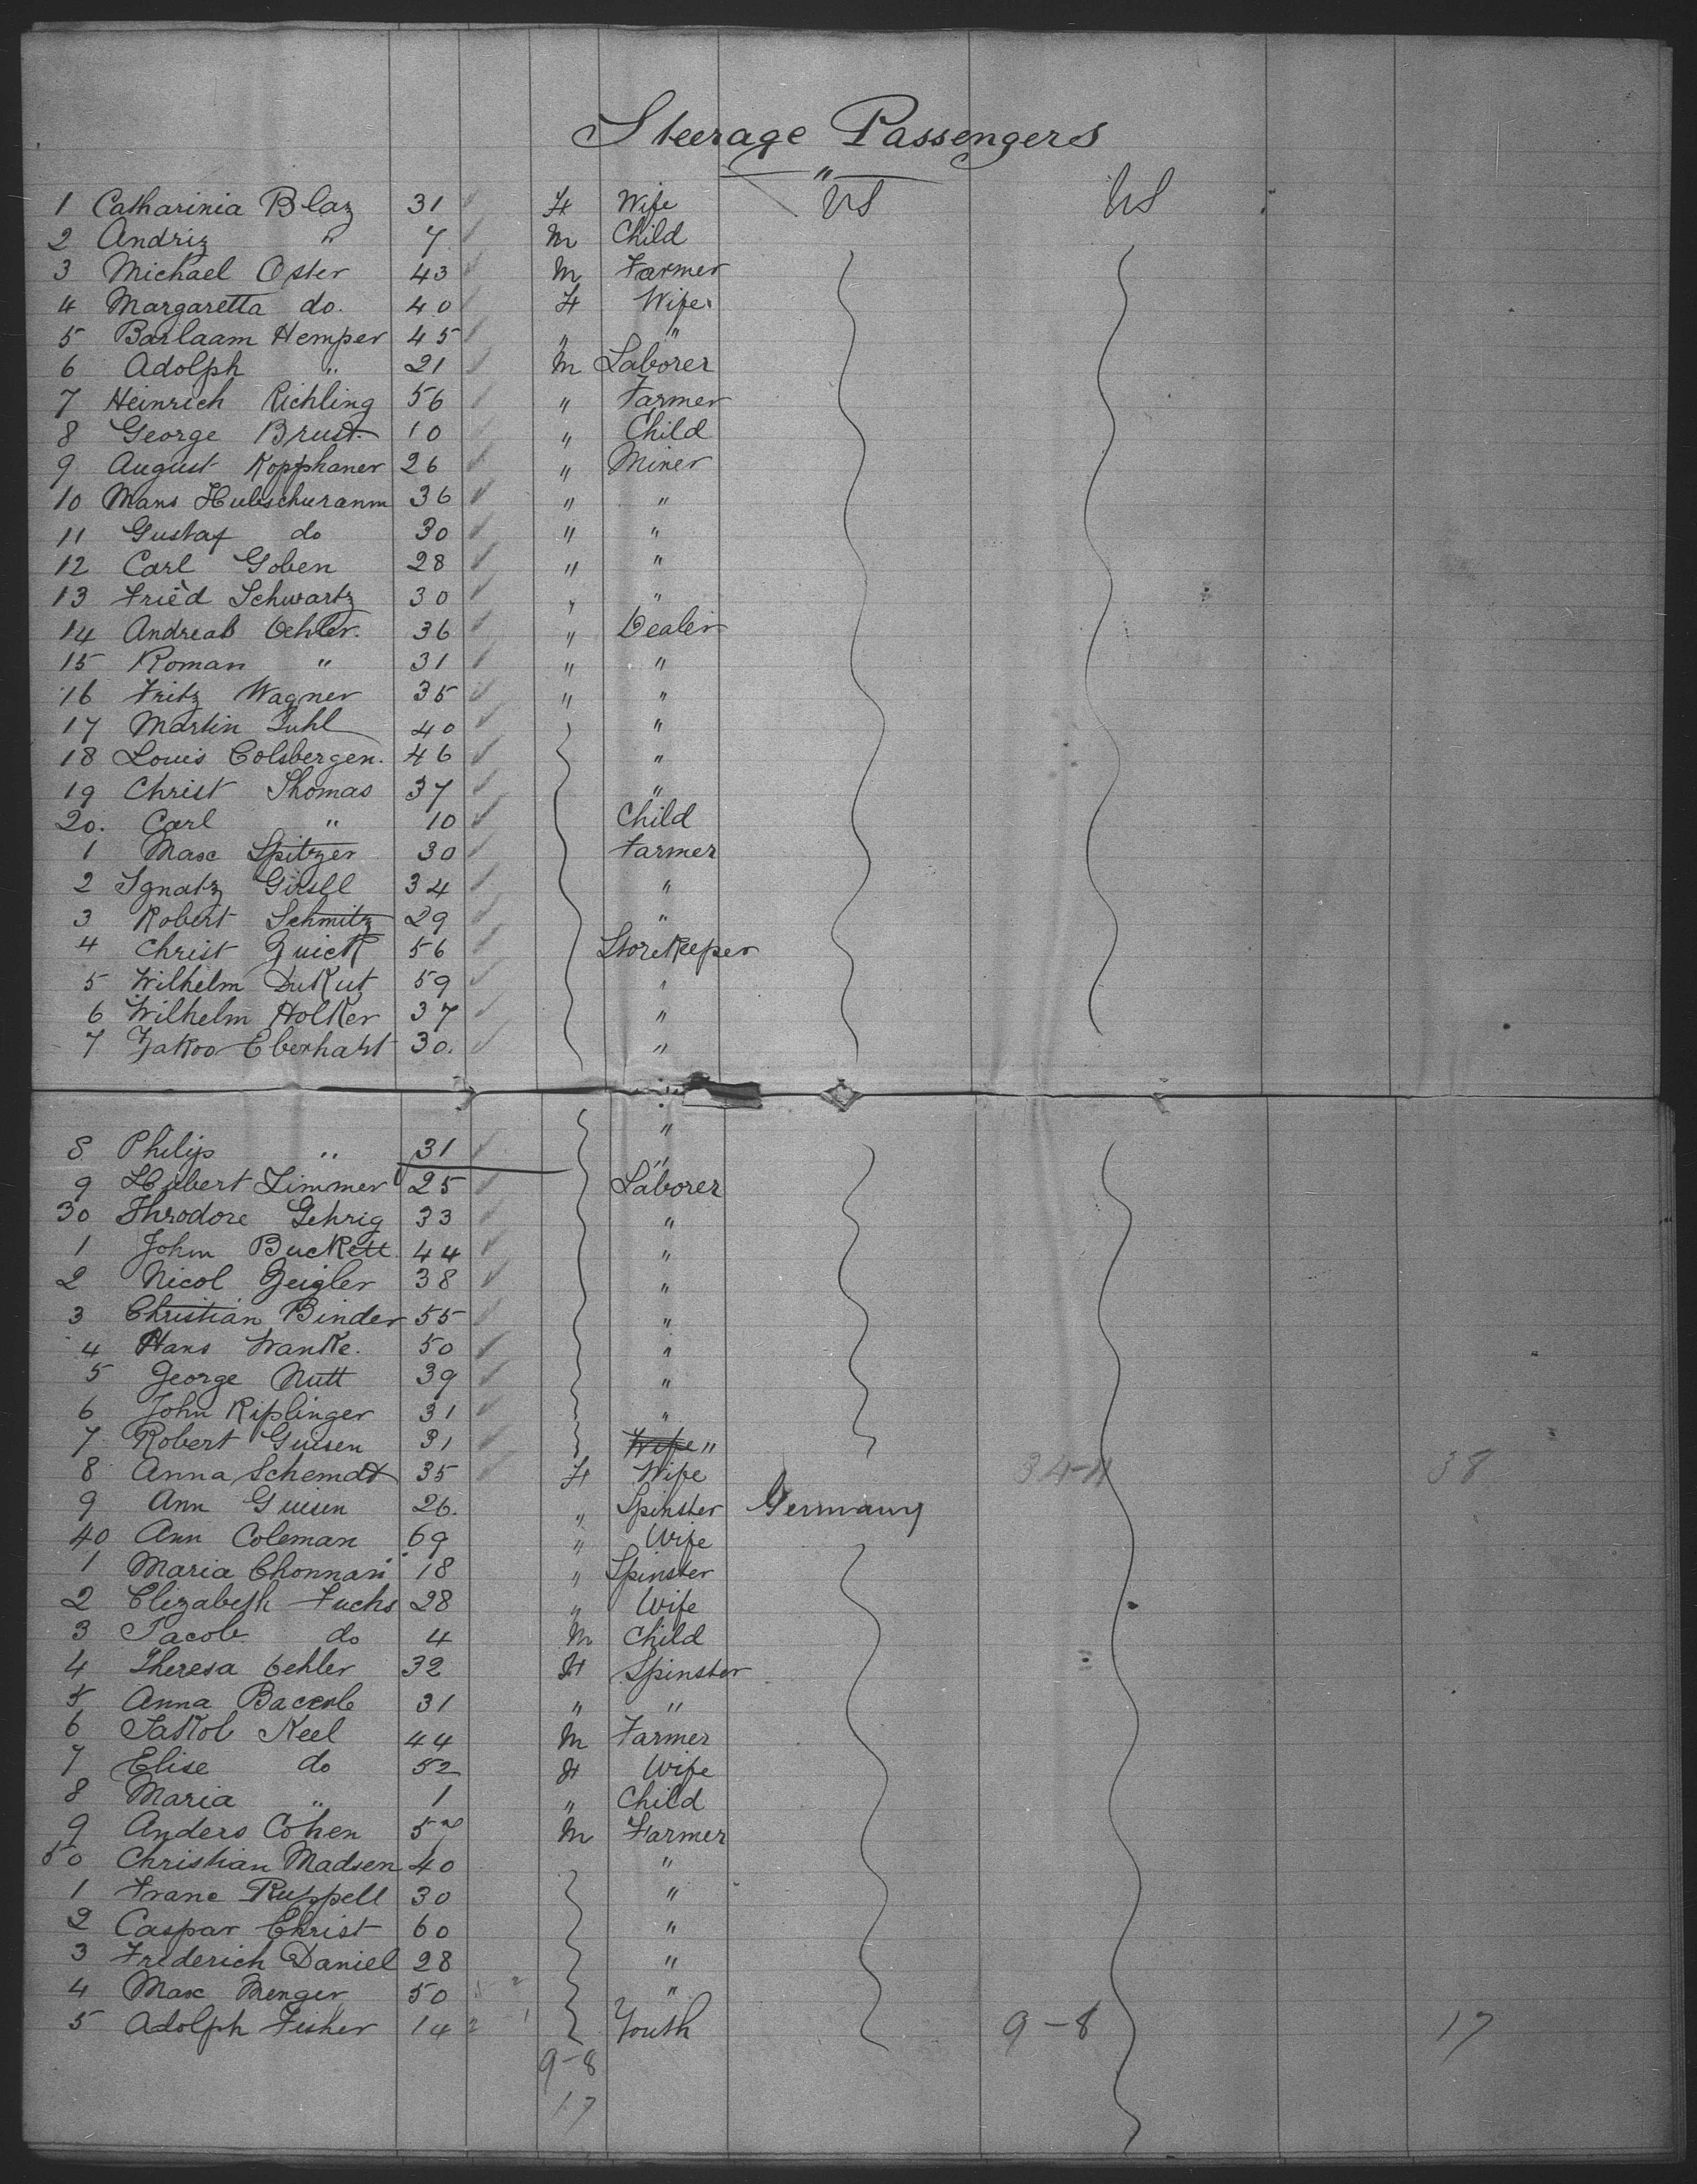 Steerage Passengers
"
1 Catharinia Blaz 31 F Wife US US
2 Andriz " 7 M Child
3 Michael Oster 43 M Farmer
4 Margaretta do. 40 F Wife
5 Barlaam Hemper 45 " "
6 Adolph " 21 M Laborer
7 Heinrich Richling 56 " Farmer
8 George Brust 10 " Child
9 August Kopphaner 26 " Miner
10 Mans Hubschuranm 36 " "
11 Gustaf do 30 " "
12 Carl Goben 28 " "
13 Fried Schwartz 30 " "
14 Andreas Oehler. 36 " Dealer
15 Roman " 31 " "
16 Fritz Wagner 35 " "
17 Martin Luhl 40 "
18 Louis Colsbergen. 46 "
19 Christ Thomas 37 "
20. Carl " 10 Child
1 Max Spitzer 30 Farmer
2 Ignatz 34 "
3 Robert Schmitz 29 "
4 Christ Quick 56 Storekeeper
5 Wilhelm DuKut 59 "
6 Wilhelm Holker 37 "
7 Eberhart 30. "
8 Philip " 31 "
9 Hubert Zimmer 25 Laborer
30 Throdore Gehrig 33 "
1 John Buckett 44 "
2 Nicol Zeigler 38 "
3 Christian Binder 55 "
4 Hans Wanke. 50 "
5 George Nutt 39 "
6 John Riplinger 31 "
7 Robert Guisen 31 Wife "
8 Anna Schemdt 35 F Wife 34-4 38
9 Ann Guisen 26. " Spinster Germany
40 Ann Coleman 69 " Wife
1 Maria Chonnan 18 " Spinster
2 Elizabeth Fuchs 28 " Wife
3 Jacob do 4 M Child
4 Theresa Oehler 32 F Spinster
5 Anna 31 " "
6 Jakob Keel 44 M Farmer
7 Elise do 52 F Wife
8 Maria " 1 " Child
9 Anders Cohen 52 M Farmer
50 Christian Madsen 40 "
1 Franc Ruppell 30 "
2 Caspar Christ 60 "
3 Frederich Daniel 28 "
4 Max Menger 50 "
5 Adolph Fisher 14 Youth 9-8 17
9-8
17